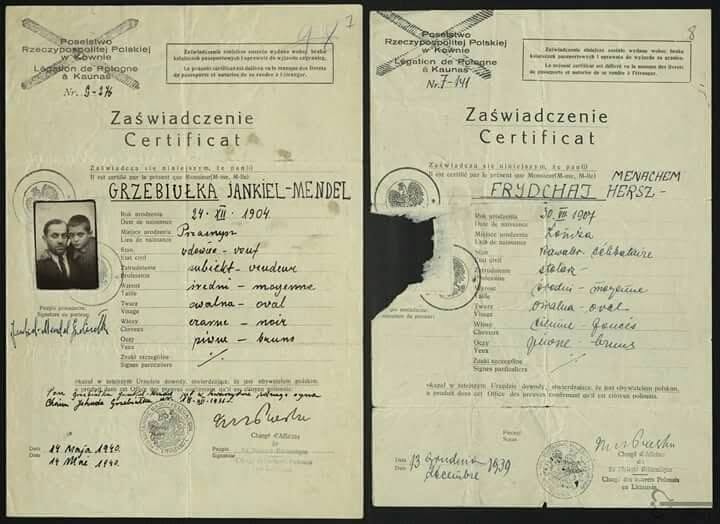 7
Poselstwo
Rzeczypospolitej Polskiej
w Kownie
Légation de Pologne
à Kaunas
Nr. 9-276
Zaświadczenie niniejsze zostało wydane wobec braku
książeczek paszportowych i uprawnia do wyjazdu zagranicę.
Le présent certificat est délivré vu le manque des livrets
de passeports et autorise de se rendre à l'étranger.
Zaświadczenie
Certificat
Zaświadcza się niniejszym, że pan(i)
Il est certifié par le présent que Monsieur(M-me, M-lle)
GRZEBIUŁKA JANKIEL-MENDEL
Rok urodzenia
Date de naissance
24. XII. 1904.
Miejsce urodzenia
Lieu de naissance
Przasnysz
Stan
État civil
wdowiec - veuf
Zatrudnienie
Profession
subiekt - vendeur
Wzrost
Taille
średni - moyenne
Twarz
Visage
owalna - oval
Włosy
Cheveux
czarne - noir
Oczy
Yeux
piwne - bruns
Znaki szczególne
Signes particuliers
Podpis posiadacza
Signature du porteur
okazał w tutejszym Urzędzie dowody, stwierdzające, że jest obywatelem polskim.
a produit dans cet Office des preuves confirmant qu'il est citoyen polonais.
Chargé d'Affaires
Data
Date
14 Maja 1940.
14 Mai 1940.
8
Poselstwo
Rzeczypospolitej Polskiej
w Kownie
Légation de Pologne
à Kaunas
Nr. 7-141
Zaświadczenie niniejsze zostało wydane wobec braku
książeczek paszportowych i uprawnia do wyjazdu zagranicę.
Le présent certificat est délivré vu le manque des livrets
de passeports et autorise de se rendre à l'étranger.
Zaświadczenie
Certificat
Zaświadcza się niniejszym, że pan(i)
Il est certifié par le présent que Monsieur(M-me, M-lle)
MENACHEM
FRYDCHAJ HERSZ-
Rok urodzenia
Date de naissance
Miejsce urodzenia
Lieu de naissance
Łomża
Stan
État civil
kawaler célibataire
Zatrudnienie
Profession
stolarz
Wzrost
Taille
średni - moyenne
Twarz
Visage
owalna - oval
Włosy
Cheveux
ciemne - foncés
Oczy
Yeux
piwne - bruns
Znaki szczególne
Signes particuliers
Podpis posiadacza
Signature du porteur
okazał w tutejszym Urzędzie dowody, stwierdzające, że jest obywatelem polskim.
a produit dans cet Office des preuves confirmant qu'il est citoyen polonais.
Pieczęć
Sceau
Chargé d'Affaires
Data
Date
13 grudnia 1939
décembre